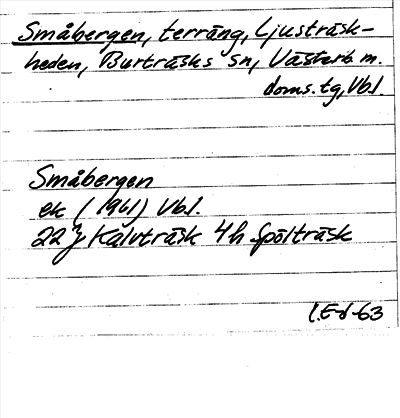 Småbergen, terräng, Ljusträsk-
heden, Burträsks sn, Västerb. m.
doms. tg, Vbl.
Småbergen
ek (1961) Vbl.
22 J Kalvträsk 4 h Spölträsk